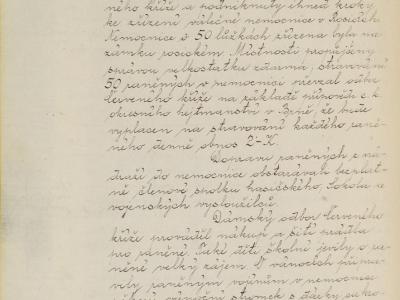 ného kříže a podniknuty ihned kroky
ke zřízení válečné nemocnice v Rosicích.
Nemocnice o 50 lůžkách zřízena byla na
zámku rosickém. Místnosti propůjčeny
správou velkostatku zdarma, stravování
50 raněných v nemocnici převzal odbor
červeného kříže na základě přípovědi c. k.
okresního hejtmanství v Brně, že bude
vyplacen na stravování každého raně-
ného denně obnos 2-K.
Dopravu raněných z ná-
draží do nemocnice obstarávali bezplat-
ně členové spolku hasičského, Sokola a
vojenských vysloužilců.
Dámský odbor Červeného
kříže prováděl nákup a šití prádla
pro raněné. Také dítky školní jevily o ra-
něné velký zájem. O vánocích připra-
vily raněným vojínům v nemocnici
vánoční stromek s dárky, jako